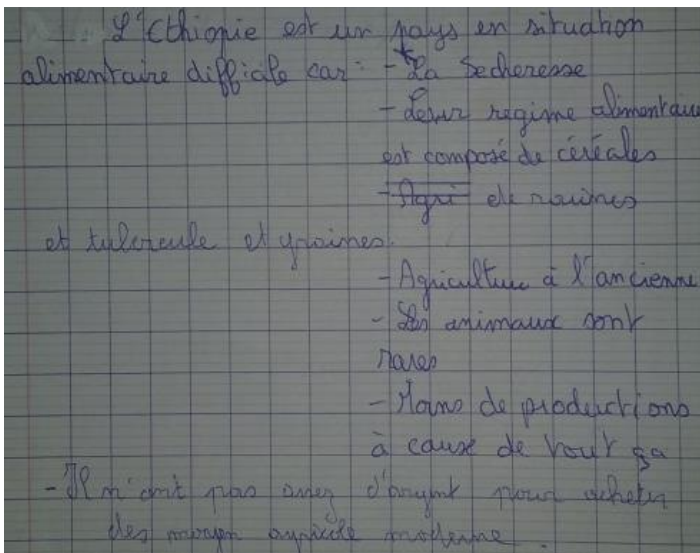 L'Ethiopie est un pays en situation
alimentaire difficile car : - La Secheresse
- Leur regime alimentaire
est composé de céréales
- Agri de racines
et tulercule et graines.
- Agriculture à l'ancienne
- Les animaux sont
rares
- Moins de productions
à cause de tout ça
- Il n'ont pas assez d'argent pour acheter
des moyen agricole moderne.